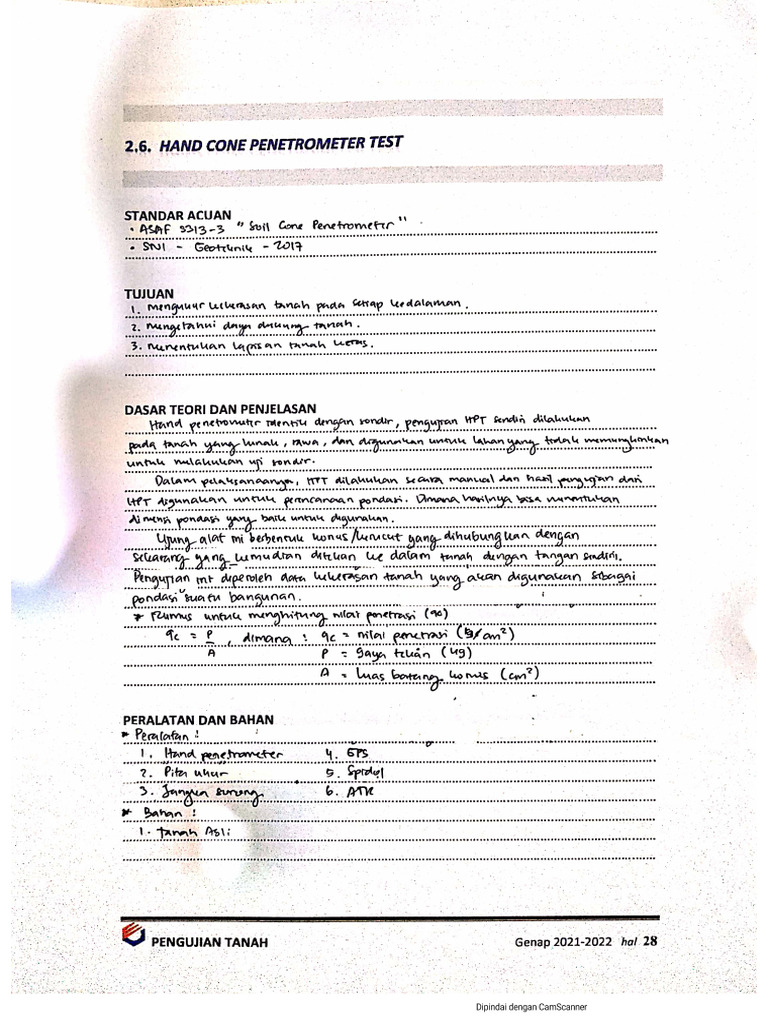 2.6. HAND CONE PENETROMETER TEST
STANDAR ACUAN
• ASAF 3313-3 "Soil Cone Penetrometer"
• SNI - Geoteknik - 2017
TUJUAN
1. mengukur kekerasan tanah pada setiap kedalaman.
2. mengetahui daya dukung tanah.
3. menentukan lapisan tanah keras.
DASAR TEORI DAN PENJELASAN
Hand penetrometer identik dengan sondir, pengujian HPT sendiri dilakukan
pada tanah yang lunak, rawa, dan digunakan untuk lahan yang tidak memungkinkan
untuk melakukan uji sondir.
Dalam pelaksanaannya, HPT dilakukan secara manual dan hasil pengujian dari
HPT digunakan untuk perencanaan pondasi. Dimana hasilnya bisa menentukan
dimensi pondasi yang baik untuk digunakan.
Ujung alat ini berbentuk konus/kerucut yang dihubungkan dengan
sekarang yang kemudian ditekan ke dalam tanah dengan tangan sendiri.
Pengujian ini diperoleh data kekerasan tanah yang akan digunakan sebagai
pondasi suatu bangunan.
* Rumus untuk menghitung nilai penetrasi (qc)
qc = P/A, dimana : qc = nilai penetrasi (kg/cm²)
P = gaya tekan (kg)
A = luas batang konus (cm²)
PERALATAN DAN BAHAN
* Peralatan :
1. Hand penetrometer 4. GPS
2. Pita ukur 5. Spidol
3. Jangka sorong 6. ATK
* Bahan :
1. Tanah Asli
PENGUJIAN TANAH Genap 2021-2022 hal 28
Dipindai dengan CamScanner